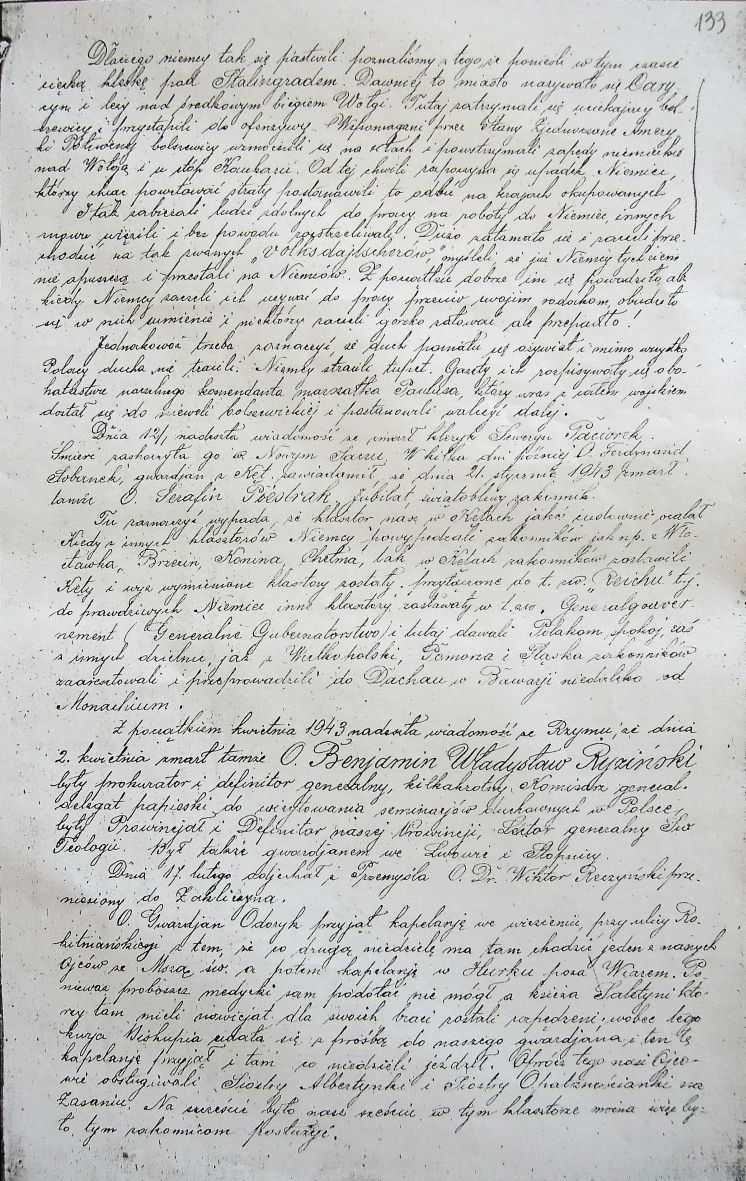 133
Dlaczego niemcy tak się pastwili poznaliśmy z tego, że ponieśli w tym czasie
ciężką klęskę pod Stalingradem. Dawniej to miasto nazywało się Cary-
cyn i leży nad środkowym biegiem Wołgi. Tutaj zatrzymali się uciekający bol-
szewicy i przystąpili do ofenzywy. Wspomagani przez Stany Zjednoczone Amery-
ki Północnej bolszewicy wzmocnili się na siłach i powstrzymali zapędy niemieckie
nad Wołgą i u stóp Kaukazu. Od tej chwili rozpoczyna się upadek Niemiec,
którzy chcąc powetować straty postanowili to odbić na krajach okupowanych
I tak zabierali ludzi zdolnych do pracy na roboty do Niemiec, innych
znowu więzili i bez powodu rozstrzeliwali. Dużo załamało się i zaczęli prze-
chodzić na tak zwanych "Volksdajtscherów," myśleli, że już Niemcy tych ziem
nie opuszczą i przestali na Niemców. Z początku dobrze im się powodziło, ale
kiedy Niemcy zaczęli ich używać do pracy przeciw swoim rodakom, obudziło
się w nich sumienie i niektórzy zaczęli gorzko żałować, ale przepadło!
Jednakowoż trzeba zaznaczyć, że duch pomału się ożywiał i mimo wszystko
Polacy ducha nie tracili. Niemcy stracili tupet. Gazety ich rozpisywały się o bo-
haterstwie naczelnego komendanta marszałka Paulusa, który wraz z całem wojskiem
dostał się do niewoli bolszewickiej i postanowili walczyć dalej.
Dnia 13/1 nadeszła wiadomość że zmarł kleryk Seweryn Paciorek.
Śmierć zaskoczyła go w Nowym Sączu. W kilka dni później O. Ferdynand
Sobanek, gwardjan z Kęt zawiadomił, że dnia 21. stycznia 1943 zmarł
tamże O. Serafin Półstrak, jubilat, świątobliwy zakonnik.
Tu zaznaczyć wypada, że klasztor nasz w Kętach jakoś cudownie ocalał
Kiedy z innych klasztorów Niemcy powypędzali zakonników jak n.p. Wło-
cławka, Brzezin, Konina, Chełma, tak w Kętach zakonników zostawili
Kęty i wyż wymienione klasztory zostały przyłączone do t. zw. "Reichu" tj.
do prawdziwych Niemiec inne klasztory zostawały w t. zw. "Generalgouver-
nement (Generalne Gubernatorstwo) i tutaj dawali Polakom spokój, zaś
z innych dzielnic, jak z Wielkopolski, Pomorza i Śląska zakonników
zaaresztowali i przeprowadzili do Dachau w Bawarji niedaleko od
Monachium.
Z początkiem kwietnia 1943 nadeszła wiadomość ze Rzymu, że dnia
2. kwietnia zmarł tamże O. Benjamin Władysław Ryziński
były prokurator i definitor generalny, kilkakrotny Komisarz general.
delegat papieski do wizytowania seminarjów duchownych w Polsce,
były Prowincjał i Definitor naszej Prowincji, Lektor generalny Św
Teologii. Był także gwardjanem we Lwowie i Stopnicy.
Dnia 17. lutego odjechał z Przemyśla O. Dr. Wiktor Rzezyński prze-
niesiony do Zakliczyna.
O. Gwardjan Odoryk przyjął kapelanję we więzieniu przy ulicy Ro-
kitniańskiej z tem, że co drugą niedzielę ma tam chodzić jeden z naszych
Ojców ze Mszą św. a potem kapelanję w Hurku poza Wiarem. Po
nieważ proboszcz medycki sam podołać nie mógł a księża Saletyni któ-
rzy tam mieli nowicjat dla swoich braci zostali wypędzeni, wobec tego
kurja Biskupia udała się z prośbą do naszego gwardjana i ten tę
kapelanję przyjął i tam co niedzieli jeździł. Oprócz tego nasi Ojco-
wie obsługiwali Siostry Albertynki i Siostry Opatrznościanki na
Zasaniu. Na szczęście było nas sześciu w tym klasztorze można więc by-
ło tym zakonnicom posłużyć.